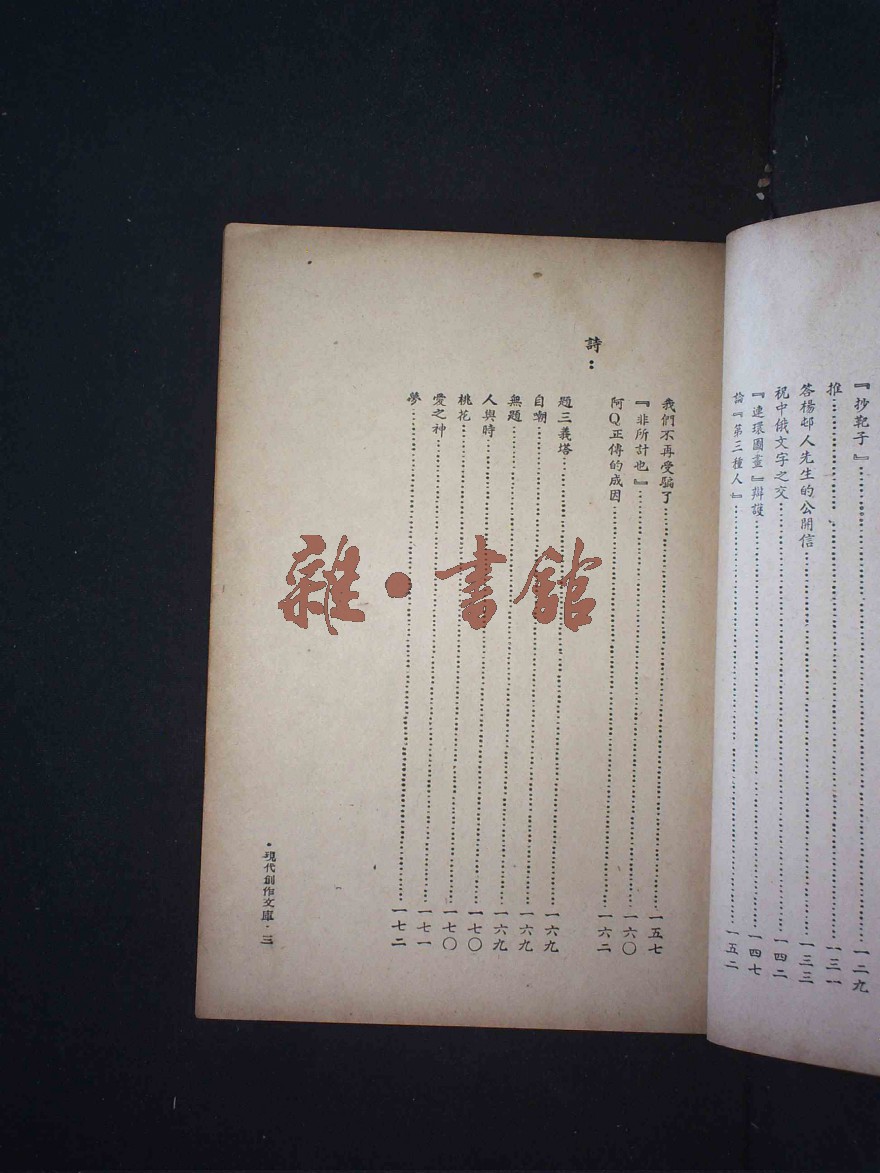 『抄靶子』……一二九
推……一三一
答楊邨人先生的公開信……一三三
祝中俄文字之交……一四二
『連環圖畫』辯護……一四七
論『第三種人』……一五二
我們不再受騙了……一五七
『非所計也』……一六〇
阿Q正傳的成因……一六二
詩：
題三義塔……一六九
自嘲……一六九
無題……一六九
人與時……一七〇
桃花……一七〇
愛之神……一七一
夢……一七二
·現代創作文庫·三
雜·書館